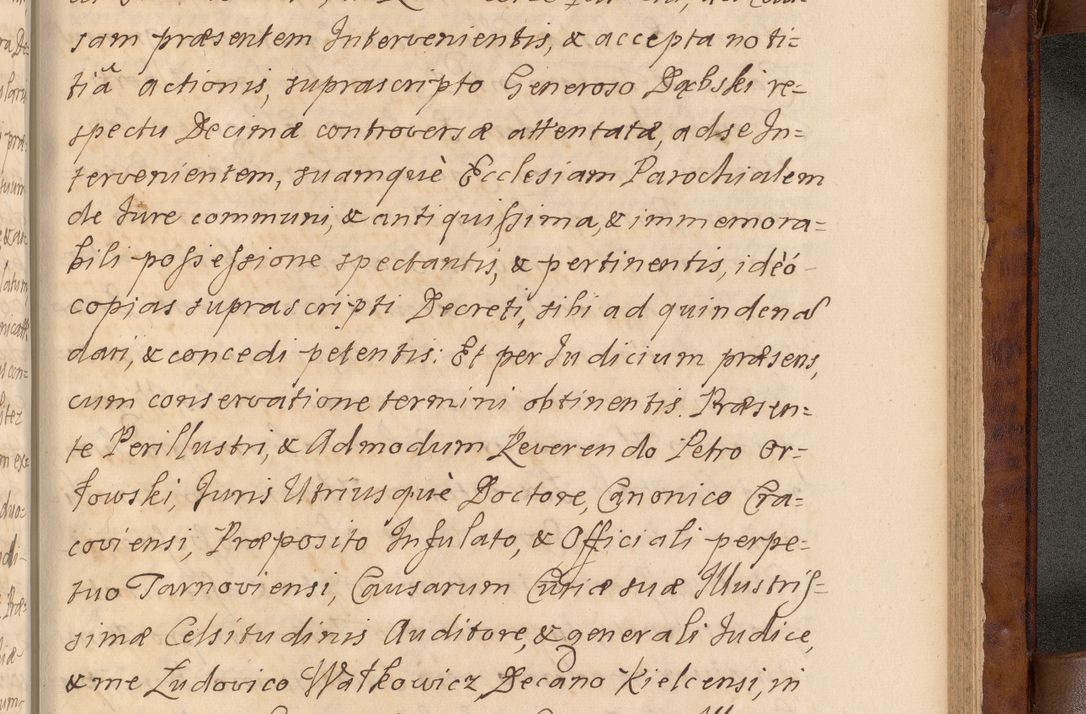 sam præsentem Intervenientis, & accepta noti=
tiâ actionis, suprascripto Generoso Dąbski re=
spectu Decimæ controversæ attentatæ, ad se In=
tervenientem, suamquè Ecclesiam Parochialem
de Iure communi, & antiquissima, & immemora=
bili possessione spectantis, & pertinentis, ideò
copias suprascripti Decreti, sibi ad quindenam
dari, & concedi petentis: Et per Iudicium præsens,
cum conservatione termini obtinentis. Præsen=
te Perillustri, & Admodum Reverendo Petro Or=
łowski, Iuris Utriusquè Doctore, Canonico Cra=
coviensi, Præposito Infulato, & Officiali perpe=
tuo Tarnoviensi, Causarum Curiæ suæ Illustris=
simæ Celsitudinis Auditore, & generali Iudice,
& me Ludovico Wątkowicz, Decano Kielcensi, in